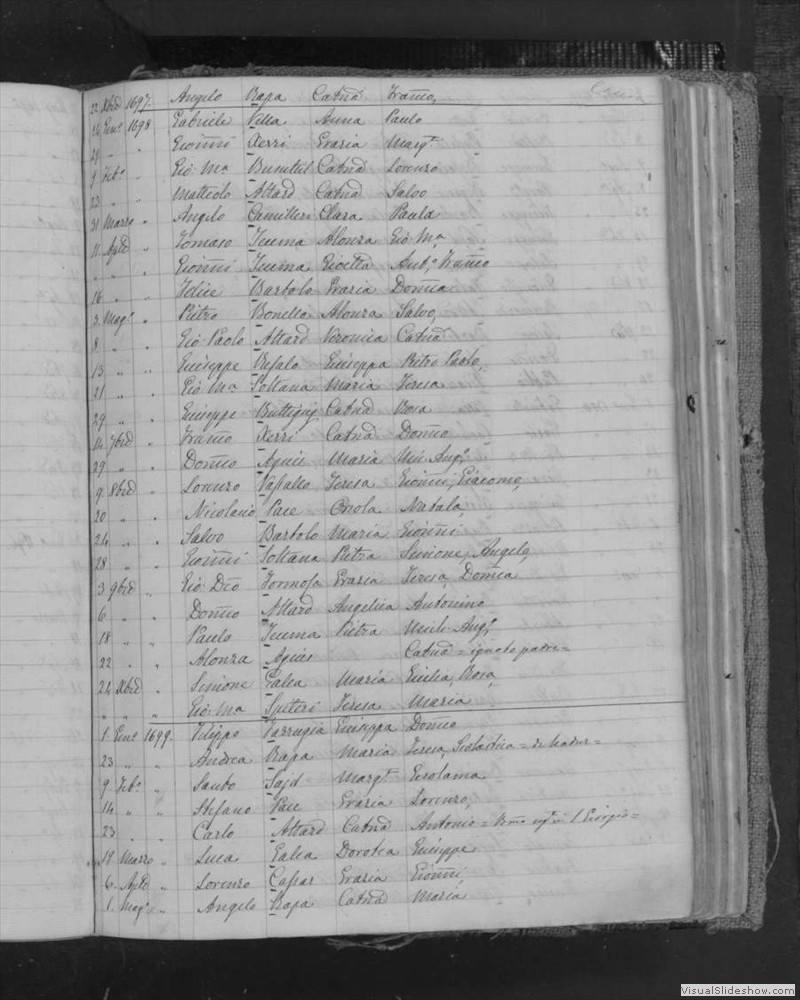 22 Xbre 1697. Angelo Rapa Catnd Franco,
24 Genro 1698 Gabriele Vella Anna Paulo
28 " " Gionni Xerri Grazia Margta
9 Febo " Gio Ma Busuttil Catnd Lorenzo
23 " " Matteolo Attard Catnd Salvo
31 Marzo " Angelo Camilleri Clara Paula
11 Aple " Tomaso Teuma Alonza Gio Ma
" " " Gionni Teuma Gioetta Anto Franco
16 " " Felice Bartolo Grazia Domca
3 Mago " Pietro Bonello Alonza Salvo,
8 " " Gio Paolo Attard Veronica Catnd
13 " " Giuseppe Refalo Giuseppa Pietro Paolo,
21 " " Gio Ma Soltana Maria Teresa
29 " " Giuseppe Buttigieg Catnd Rosa
14 7bre " Franco Xerri Catnd Domco
29 " " Domco Agius Maria Mich Ango
9 8bre " Lorenzo Vassallo Teresa Gionni, Giacomo,
20 " " Nicolacio Pace Orsola Natala
24 " " Salvo Bartolo Maria Gionni
28 " " Gionni Soltana Pietra Simone, Angelo,
3 9bre " Gio Dco Formosa Grazia Teresa, Domca
6 " " Domco Attard Angelica Antonino
18 " " Paulo Teuma Pietra Mich Ango
22 " " Alonza Agius Catnd = ignoto padre =
24 Xbre " Simone Galea Maria Giulia, Rosa,
" " " Gio Ma Spiteri Teresa Maria
1 Genro 1699. Filippo Farrugia Giuseppa Domco
23 " " Andrea Rapa Maria Teresa, Scolastica =
9 Febo " Santo Sajd Margta Gerolama
14 " " Stefano Pace Grazia Lorenzo,
23 " " Carlo Attard Catnd Antonio = Giorgio =
18 Marzo " Luca Galea Dorotea Giuseppe
6 Aple " Lorenzo Cassar Grazia Gionni
1 Mago " Angelo Rapa Catnd Maria
VisualSlideshow.com